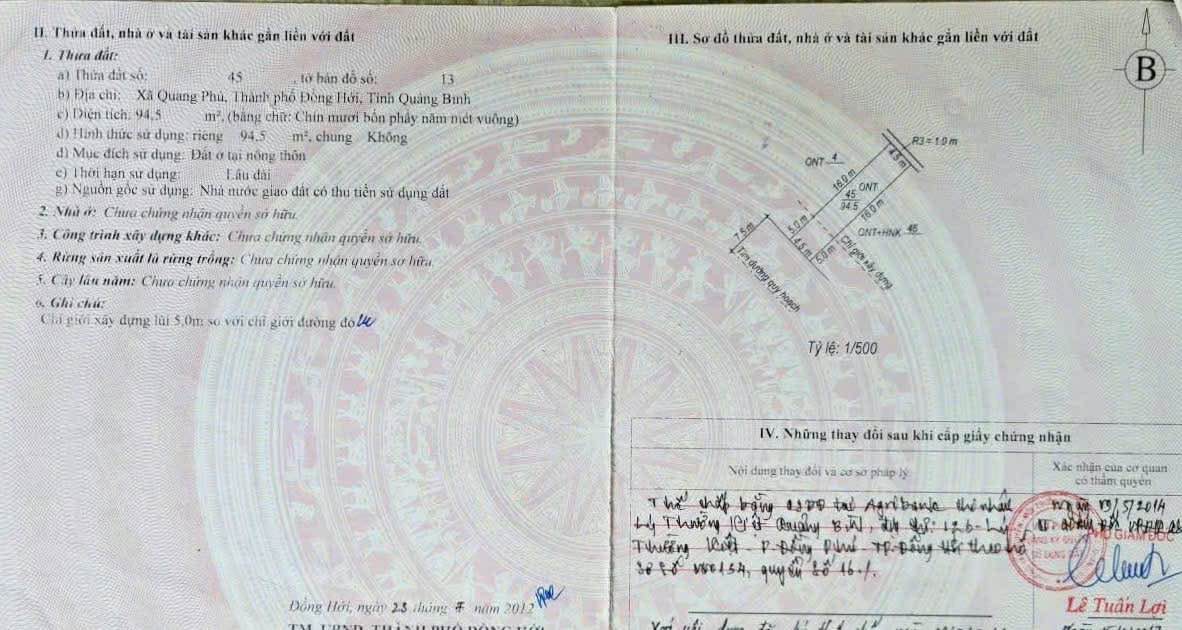 II. Thửa đất, nhà ở và tài sản khác gắn liền với đất
1. Thửa đất:
a) Thửa đất số: 45 , tờ bản đồ số: 13
b) Địa chỉ: Xã Quang Phú, Thành phố Đồng Hới, Tỉnh Quảng Bình
c) Diện tích: 94.5 m², (bằng chữ: Chín mươi bốn phẩy năm mét vuông)
d) Hình thức sử dụng: riêng 94.5 m², chung Không
đ) Mục đích sử dụng: Đất ở tại nông thôn
e) Thời hạn sử dụng: Lâu dài
g) Nguồn gốc sử dụng: Nhà nước giao đất có thu tiền sử dụng đất
2. Nhà ở: Chưa chứng nhận quyền sở hữu.
3. Công trình xây dựng khác: Chưa chứng nhận quyền sở hữu.
4. Rừng sản xuất là rừng trồng: Chưa chứng nhận quyền sở hữu.
5. Cây lâu năm: Chưa chứng nhận quyền sở hữu.
6. Ghi chú:
Chỉ giới xây dựng lùi 5,0m so với chỉ giới đường đỏ
Đồng Hới, ngày 23 tháng 7 năm 2012
TM. UBND THÀNH PHỐ ĐỒNG HỚI
III. Sơ đồ thửa đất, nhà ở và tài sản khác gắn liền với đất
B
R3 = 1.0 m
4.5 m
ONT 4
16.0 m
ONT
45
94.5
16.0 m
ONT+HNK 46
5.0 m
7.5 m
4.5 m
5.0 m
Chỉ giới xây dựng
Tim đường quy hoạch
Tỷ lệ: 1/500
IV. Những thay đổi sau khi cấp giấy chứng nhận
Nội dung thay đổi và cơ sở pháp lý
Xác nhận của cơ quan
có thẩm quyền
Thế chấp bằng QSDĐ tại Agribank chi nhánh
Lý Thường Kiệt Quảng Bình, địa chỉ: 126 Lý
Thường Kiệt - P. Đồng Phú - TP Đồng Hới theo hồ
sơ số quyển số 16./.
5/2014
PHÓ GIÁM ĐỐC
Lê Tuấn Lợi